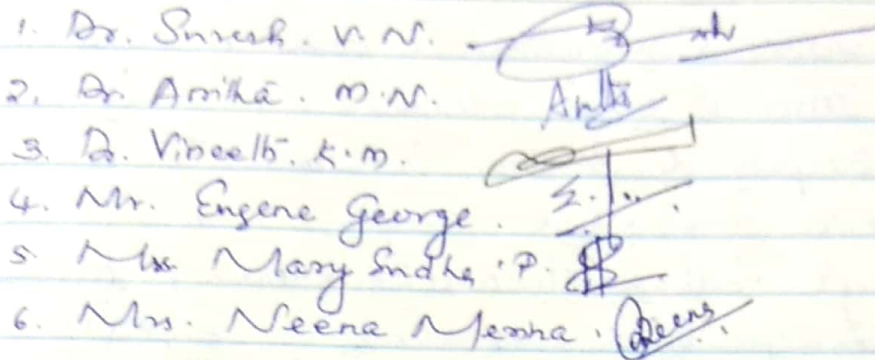 1. Dr. Suresh. V. N.
2. Dr. Anitha. M. N. Anitha
3. Dr. Vineeth. K. M.
4. Mr. Eugene George.
5. Mrs. Mary Sudha. P.
6. Mrs. Neena